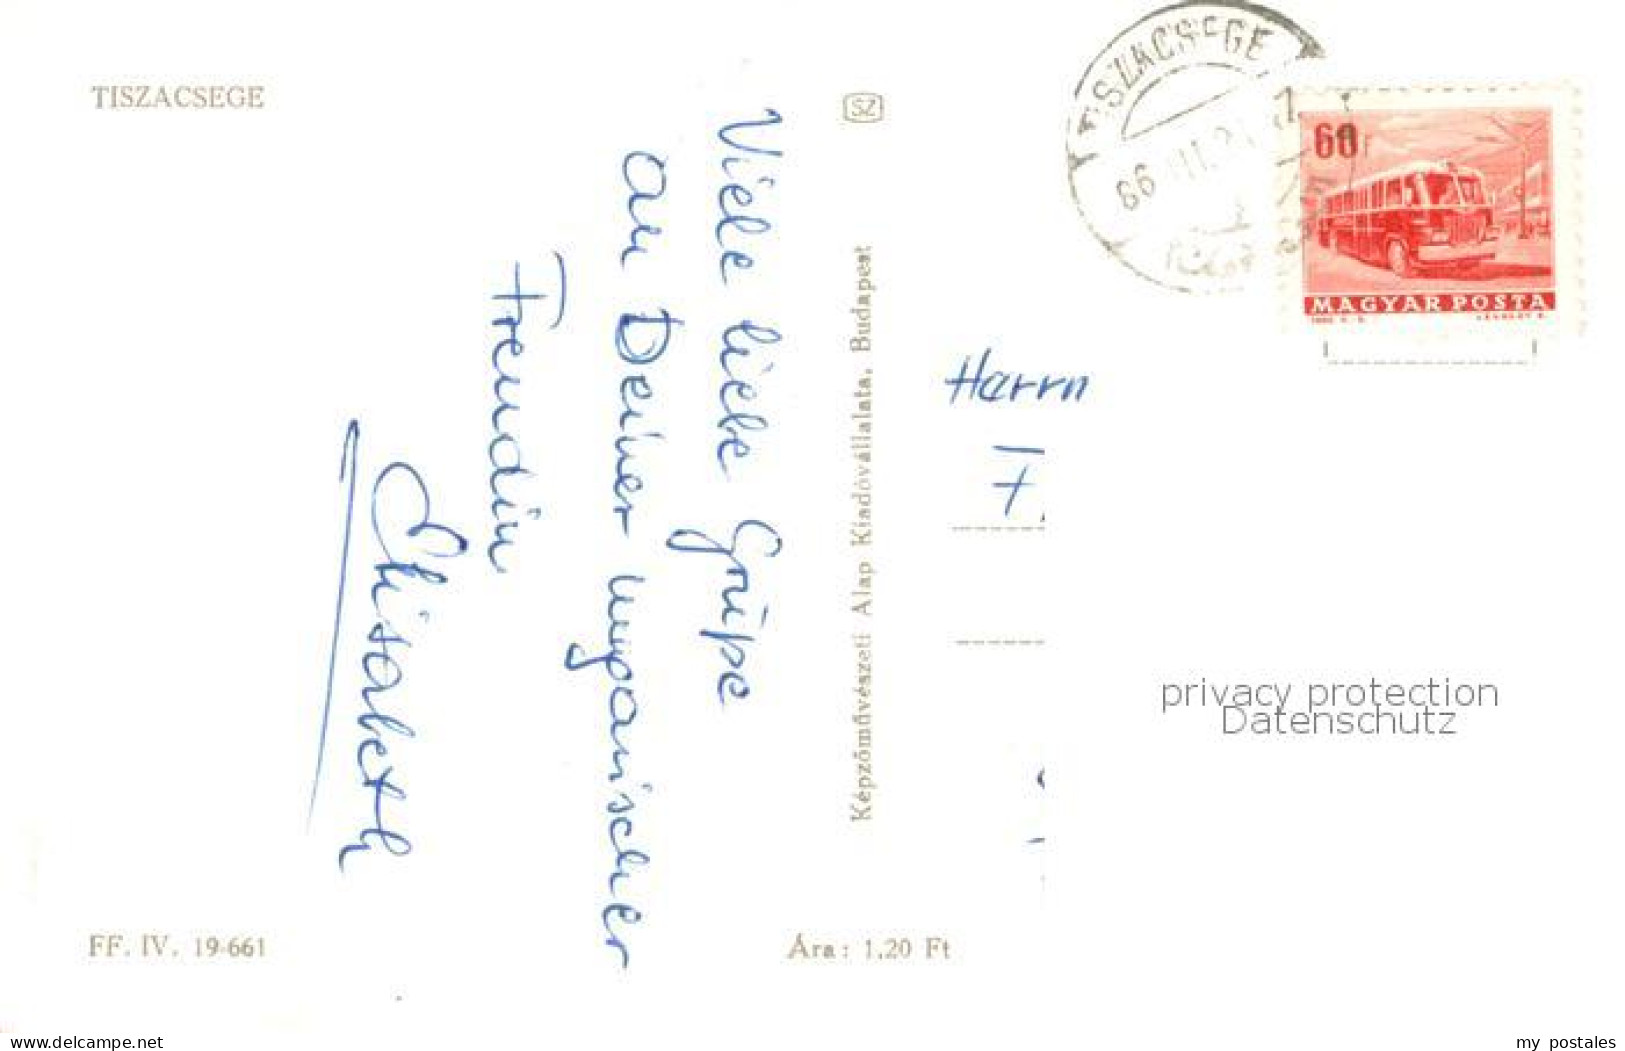 TISZACSEGE
SZ
Viele liebe Grüße
an Deiner ungarischer
Freundin
Elisabeth
Képzőművészeti Alap Kiadóvállalata, Budapest
FF. IV. 19-661
Ára: 1,20 Ft
TISZACSEGE
66
60f
MAGYAR POSTA
Harrn
F.
privacy protection
Datenschutz
www.delcampe.net
my_postales